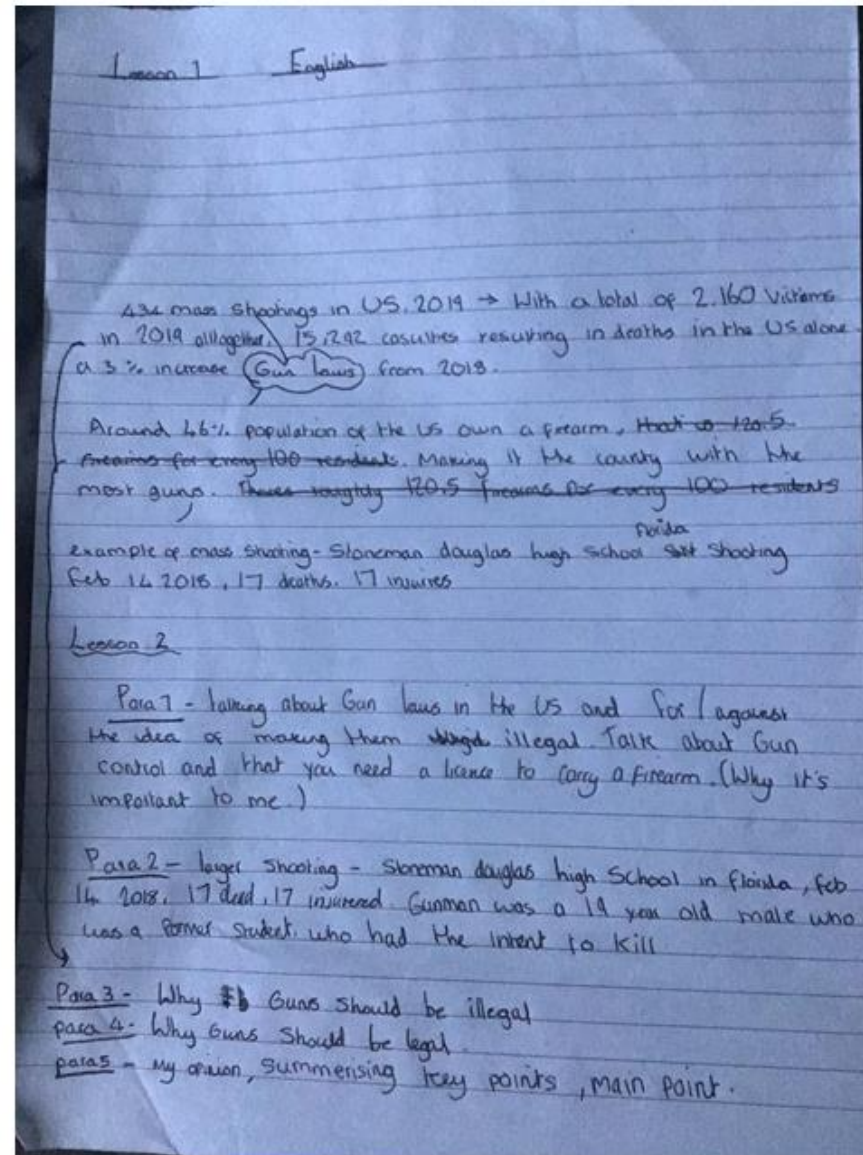 Lesson 1 English
434 mass shootings in US, 2019 → With a total of 2.160 Victims
in 2019 alltogether. 15,292 casulties resulting in deaths in the US alone
a 3% increase Gun laws from 2018.
Around 46% population of the US own a firearm, that is 120.5
firearms for every 100 residents. Making it the county with the
most guns. Theres roughtly 120.5 firearms for every 100 residents
florida
example of mass shooting - Stoneman douglas high school shooting
Feb 14 2018, 17 deaths. 17 injuires
Lesson 2
Para 1 - talking about Gun laws in the US and for / against
the idea of making them illegal. Talk about Gun
control and that you need a licence to carry a firearm. (Why it's
important to me.)
Para 2 - larger shooting - Stoneman douglas high School in florida, feb
14 2018, 17 dead, 17 injurered. Gunman was a 19 year old male who
was a former student. who had the intent to kill
Para 3 - Why Guns should be illegal
para 4 - Why Guns Should be legal.
para 5 - My opinion, Summerising key points, main point.